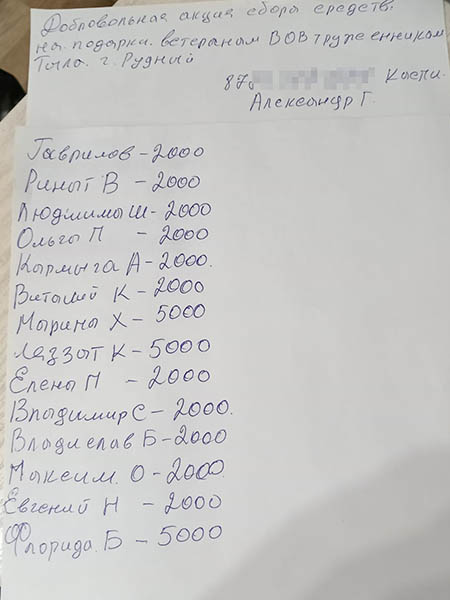 Добровольная акция сбора средств.
на подарки. ветераным ВОВ труженником
Тыла. г. Рудний
878 Каспи.
Александр Г.
Гаврилов - 2000
Риныт В - 2000
Людмимы Ш - 2000
Ольгы П - 2000
Кырмыга А - 2000.
Витылий К - 2000
Мырины Х - 5000
Ляззыт К - 5000
Елены П - 2000
Владимир С - 2000.
Владислав Б - 2000
Мыксим. О - 2000
Евгений Н - 2000
Флорида. Б - 5000